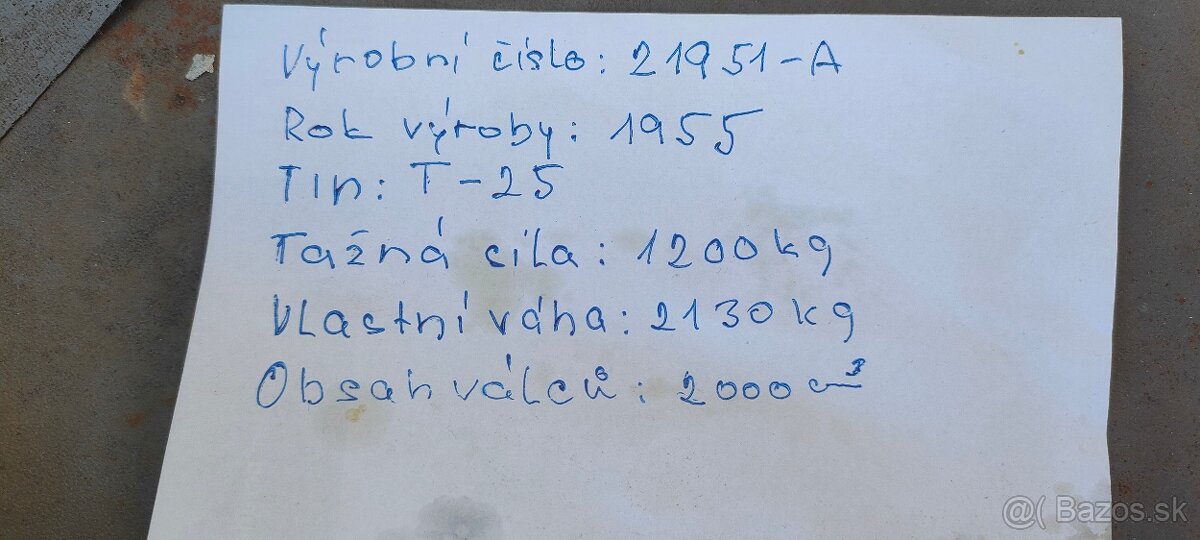 Výrobní číslo: 21951-A
Rok výroby: 1955
Tip: T-25
Tažná cila: 1200kg
Vlastní váha: 2130kg
Obsah válců: 2000cm³
@( Bazos.sk